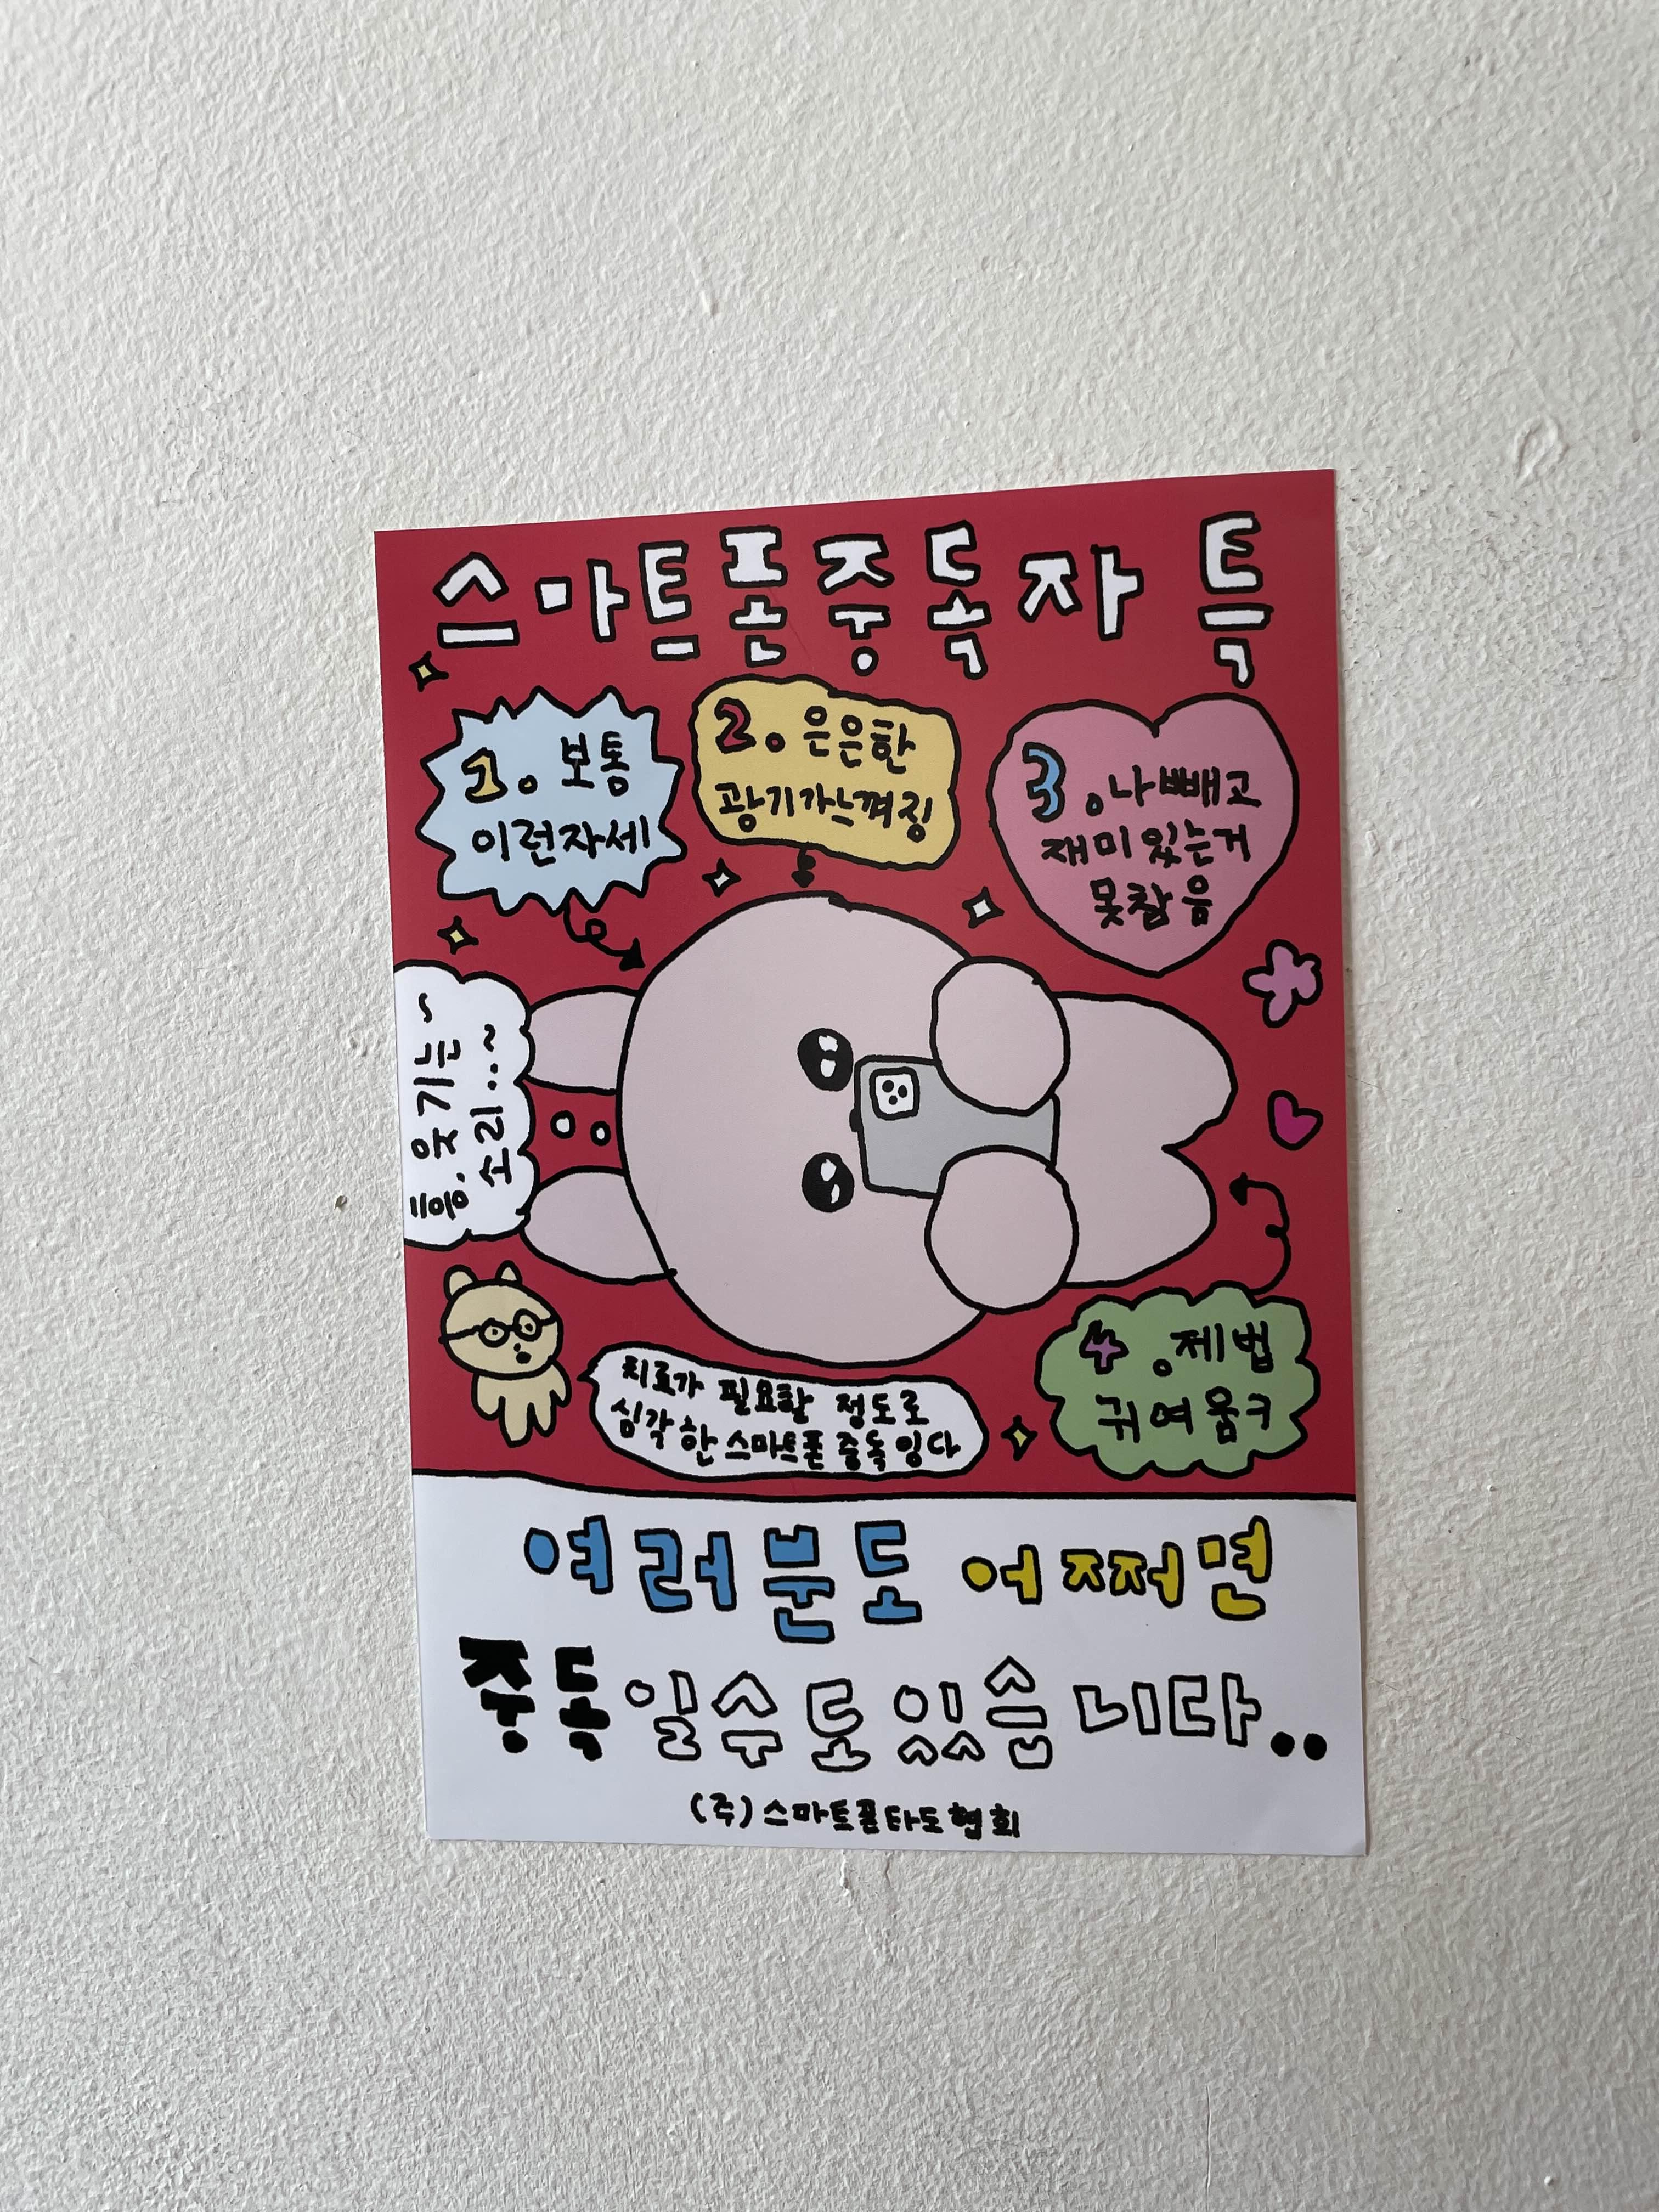 스마트폰중독자 특
1. 보통
이런자세
2. 은은한
광기가느껴징
3. 나빼고
재미있는거
못참음
흠. 웃기는~
소리..~
치료가 필요할 정도로
심각한 스마트폰 중독 잉다
4. 제법
귀여움ㅋ
여러분도 어쩌면
중독일수도 있습니다..
(주) 스마트폰타도협회